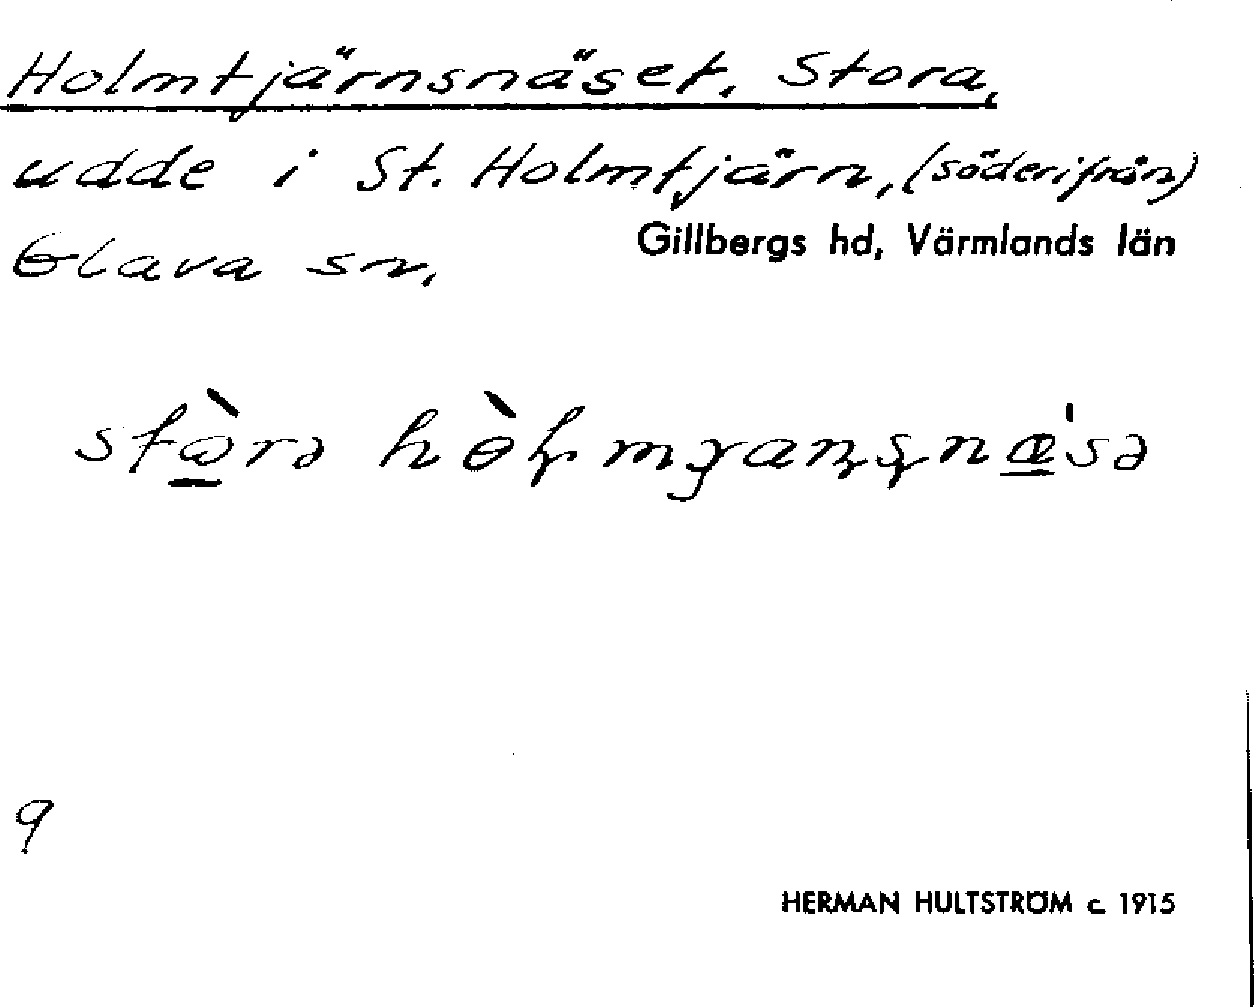 Holmtjärnsnäset, Stora,
udde i St. Holmtjärn, (söderifrån)
Glava sn, Gillbergs hd, Värmlands län
9
HERMAN HULTSTRÖM c. 1915